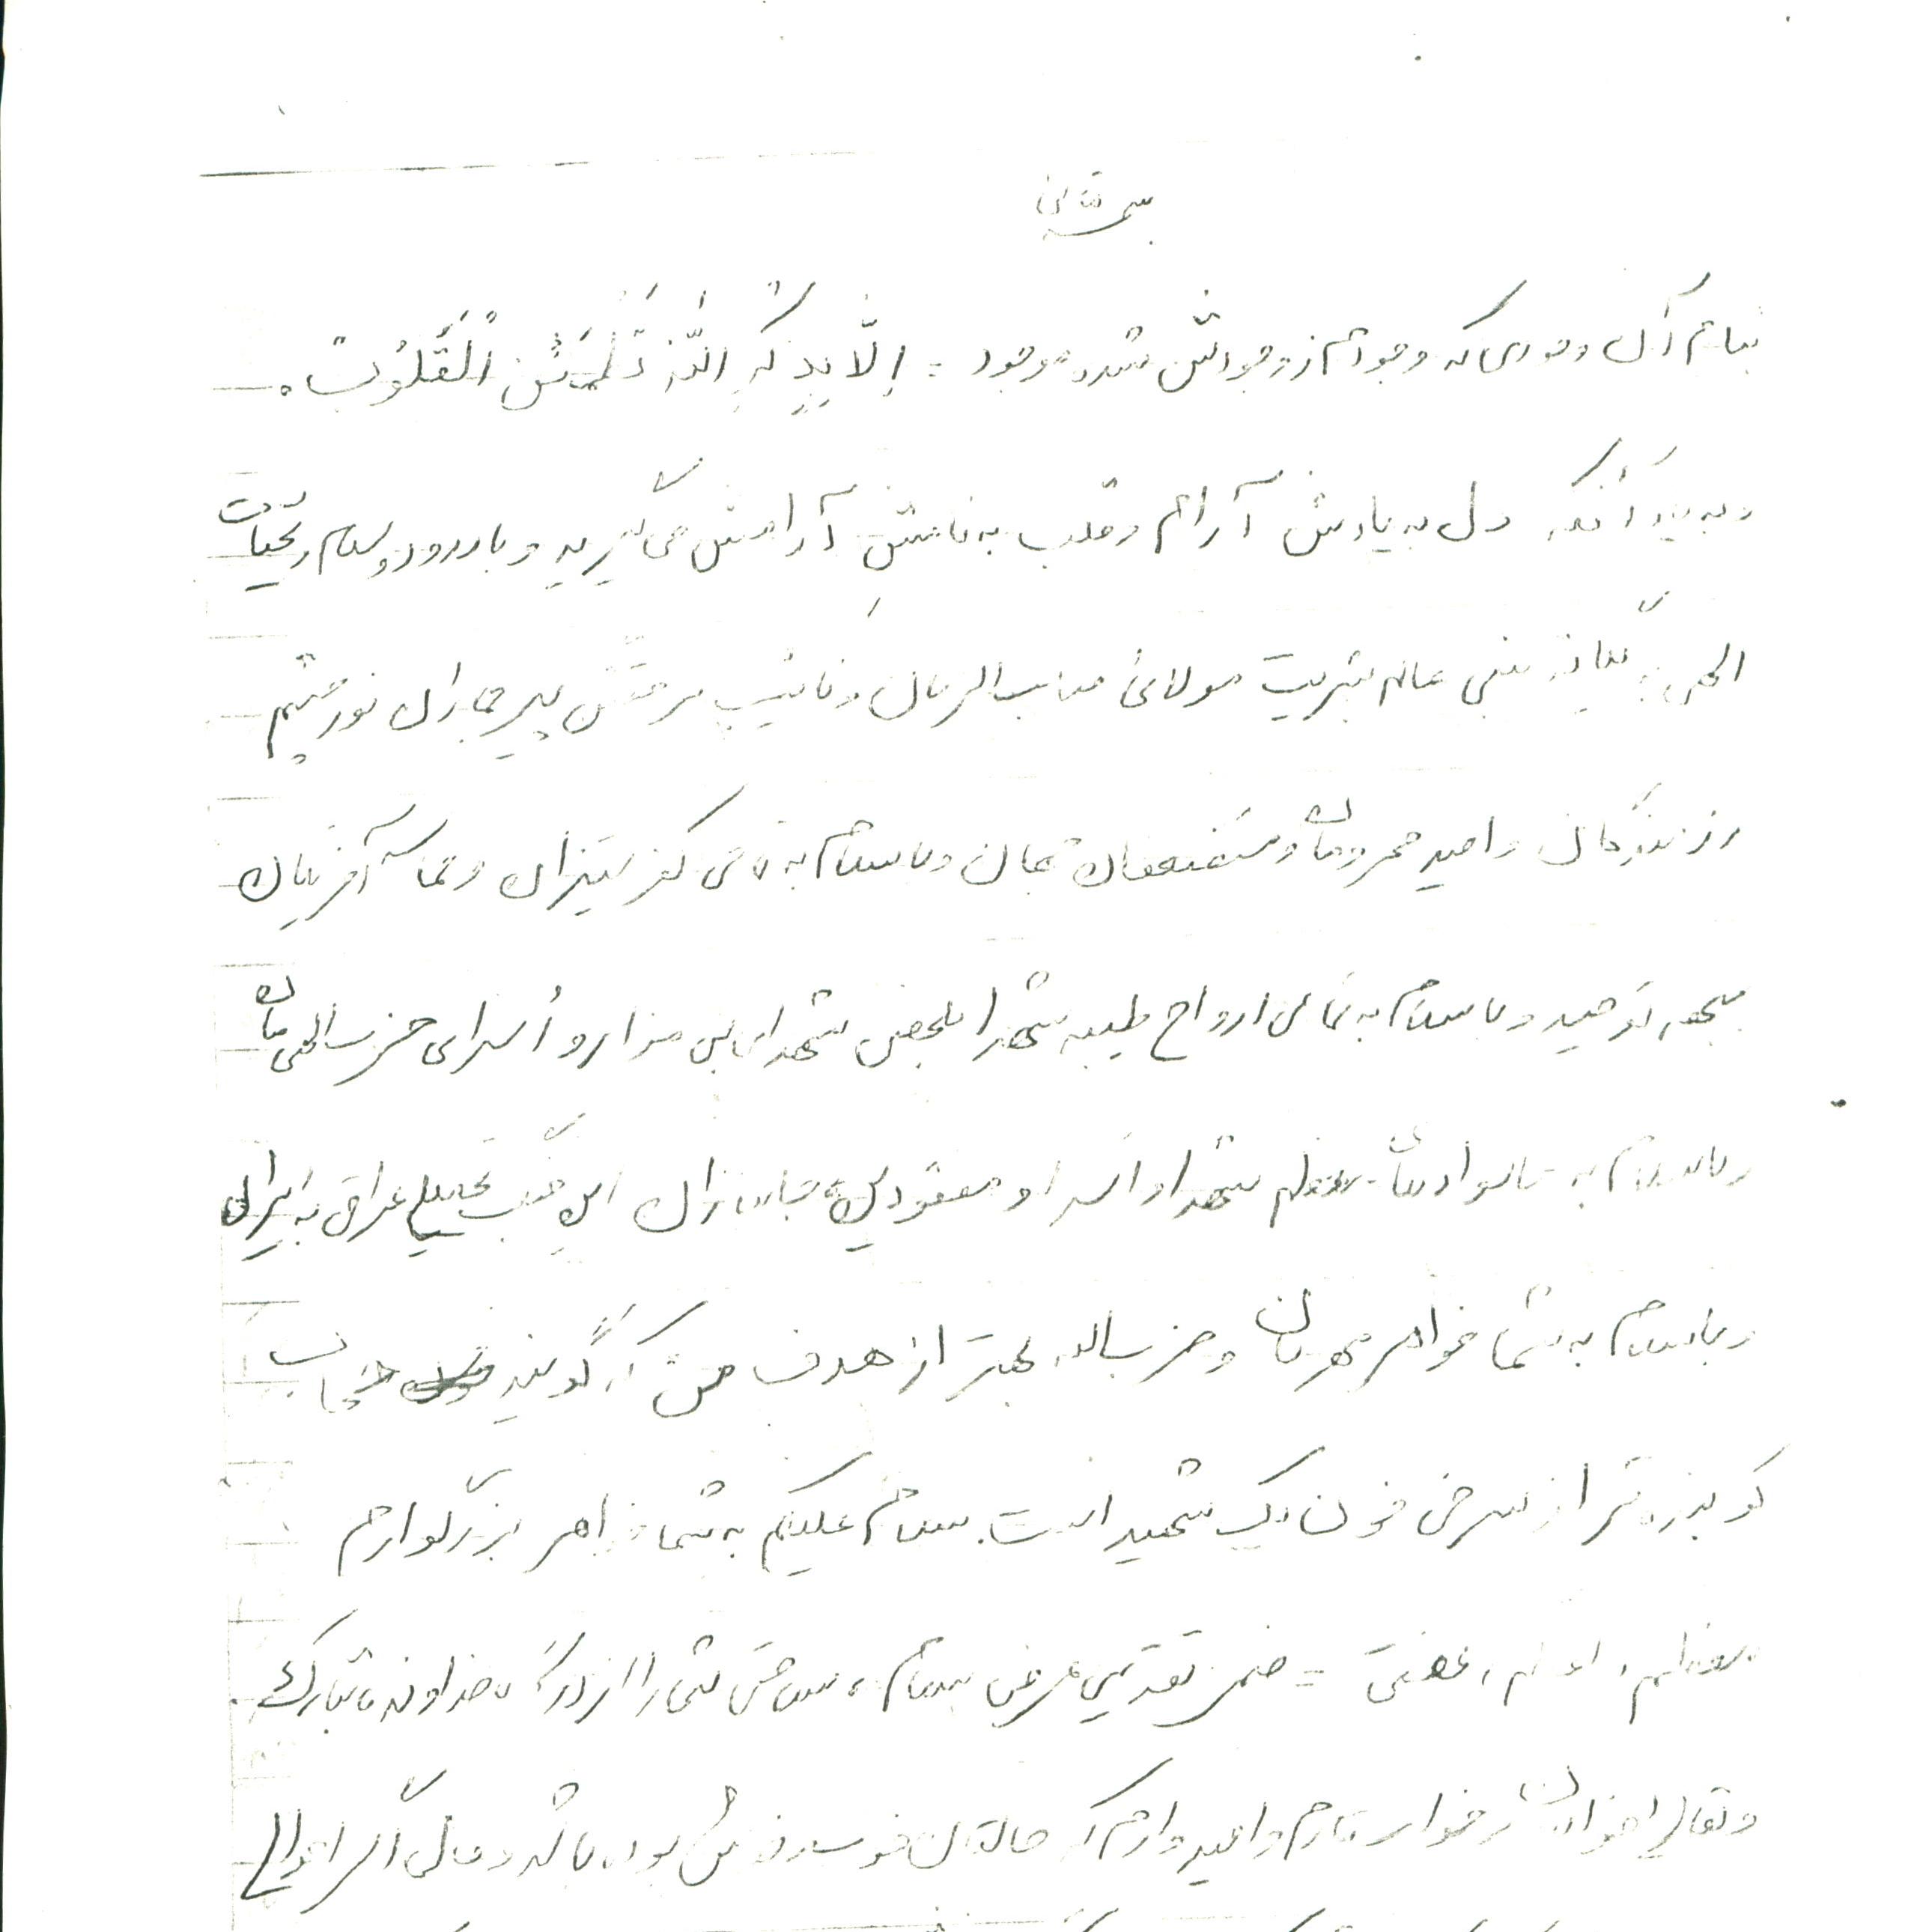 بسمه تعالی
بنام آن وجودی که وجودم ز وجودش شده موجود = اِلّا بِذِکرِ اللّه تَطمَئنُ اَلقُلوُب.
و به یاد آنکه دل به یادش آرام و قلب به نامش آرامش می‌گیرید و با درود و سلام و تحیات
به یگانه منجی عالم بشریت مولانا صاحب الزمان و نائب برحقش پیر جماران نور چشم
رزمندگان و امید محرومان و مستضعفان جهان و با سلام به تمامی کفر ستیزان و حماسه آفرینان
جبهه توحید و با سلام به تمامی ارواح طیبه شهدا بلخص شهدای این مزار و اُسرای حزب الهی مان
و با سلام به خانواده‌های معظم شهدا و اسرا و مفقودین و جانبازان این جنگ تحمیلی عراق به ایران
و با سلام به شما خواهر مهربان و حزب الله بهتر از هدف من که گویند حجاب
کوبنده تر از سرخی خون یک شهید است. سلام علیکم به شما خواهر بزرگوارم
معظم، اعظم، عفتی = ضمن تقدیم عرض سلام، سلامتی شما را از درگاه خداوند تبارک
و تعالی خواهان و خواستارم و امیدوارم که حالتان خوب و خوش بوده باشد و حال اگر احوال